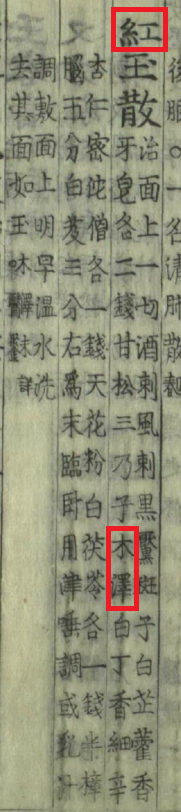 後服○一名清肺散
紅玉散
治面上一切酒刺風刺黑黶斑子白芷藿香
牙皂各二錢甘松三乃子木澤白丁香細辛
杏仁密陀僧各一錢天花粉白茯苓各一錢半樟
腦五分白芨三分右爲末臨臥用津唾調或乳汁
調敷面上明早温水洗
去其面如玉